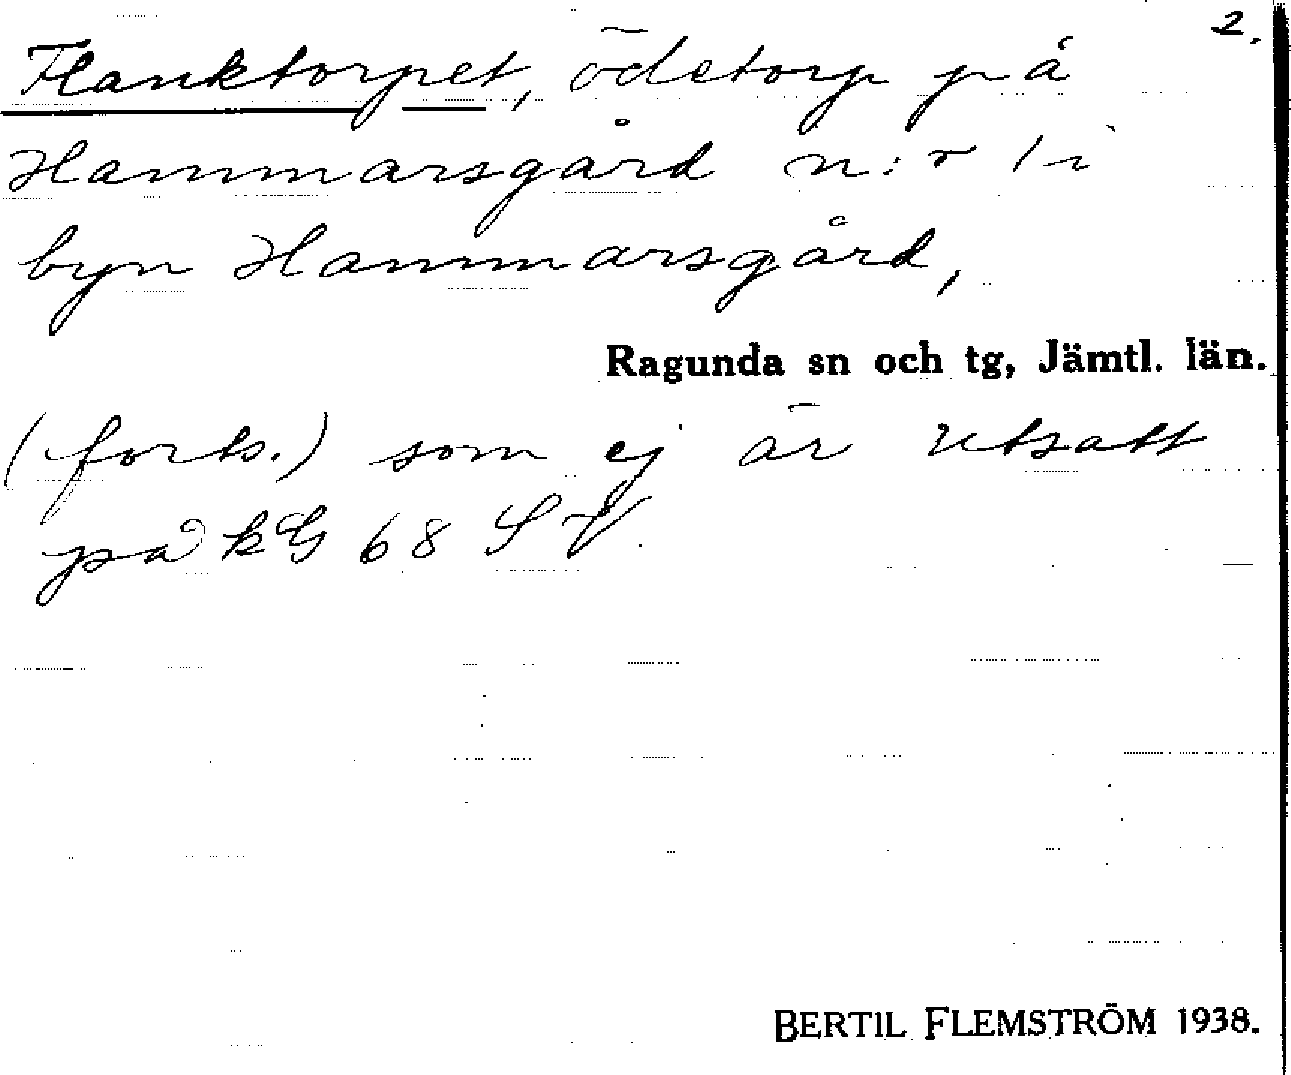 2.
Flanktorpet, ödetorp på
Hammarsgård n:r 1 i
byn Hammarsgård,
Ragunda sn och tg, Jämtl. län.
(forts.) som ej är utsatt
på kG 68 SV.
BERTIL FLEMSTRÖM 1938.